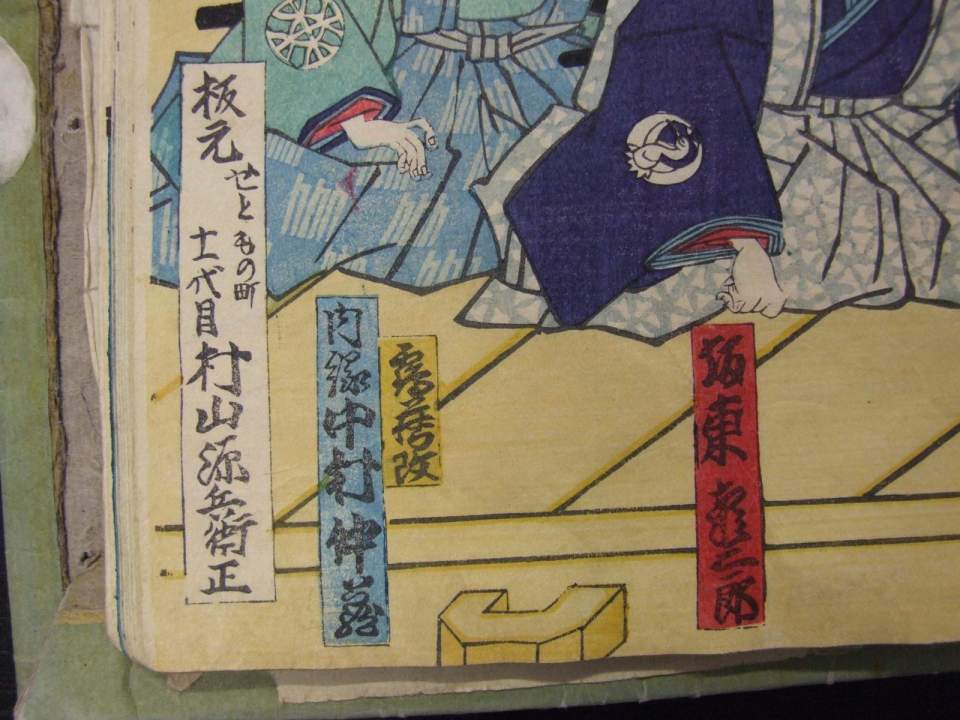 坂東彦三郎
靏蔵改
肉縁中村仲蔵
板元
せともの町
十一代目村山源兵衛正